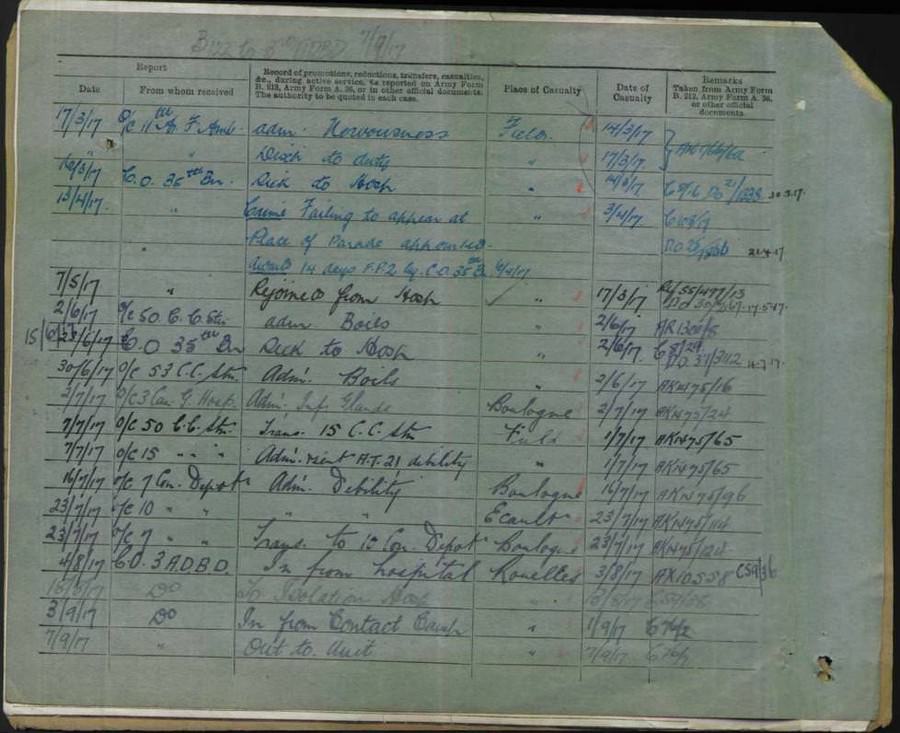 7/9/17
Report
Date
From whom received
Record of promotions, reductions, transfers, casualties,
&c., during active service, as reported on Army Form
B. 213, Army Form A. 36, or in other official documents.
The authority to be quoted in each case.
Place of Casualty
Date of
Casualty
Remarks
Taken from Army Form
B. 213, Army Form A. 36,
or other official
documents
17/3/17 O/C 11th A. F. Amb. adm. Nervousness Field 14/3/17
" " Disch to duty " 17/3/17
C.O. 35th Bn. Sick to Hosp " 30.3.17
13/4/17 " Crime Failing to appear at " 3/4/17
" Place of Parade appointed 21.4.17
Award 14 days F.P.2 by C.O. 35th Bn
7/5/17 " Rejoined from Hosp " 17/3/17
17.5.17
2/6/17 O/C 50 C.C. Stn adm Boils " 2/6/17
15/6/17 C.O 35th Bn Sick to Hosp " 2/6/17
30/6/17 O/C 53 C.C. Stn. Adm. Boils " 2/6/17 AKW75/16
2/7/17 O/C 3 Can. G. Hosp. Adm. Inf. Glands Boulogne 2/7/17 AKW75/24
7/7/17 O/C 50 C.C. Stn. Trans. 15 C.C. Stn Field 1/7/17 AKW75/65
7/7/17 O/C 15 " " " Adm. A.T. 21 debility " 1/7/17 AKW75/65
16/7/17 O/C 7 Con. Depot Adm. Debility Boulogne 16/7/17 AKW75/96
23/7/17 O/C 10 " " " " Ecault 23/7/17 AKW75/114
23/7/17 O/C 7 " " Trans. to 10 Con. Depot Boulogne 23/7/17 AKW75/124
4/8/17 C.O. 3 A.D.B.D. In from hospital Rouelles 3/8/17 AX10558 C59/36
Do To Isolation Hosp "
3/9/17 Do In from Contact Camp " 1/9/17 C76/2
7/9/17 " Out to Unit " 7/9/17